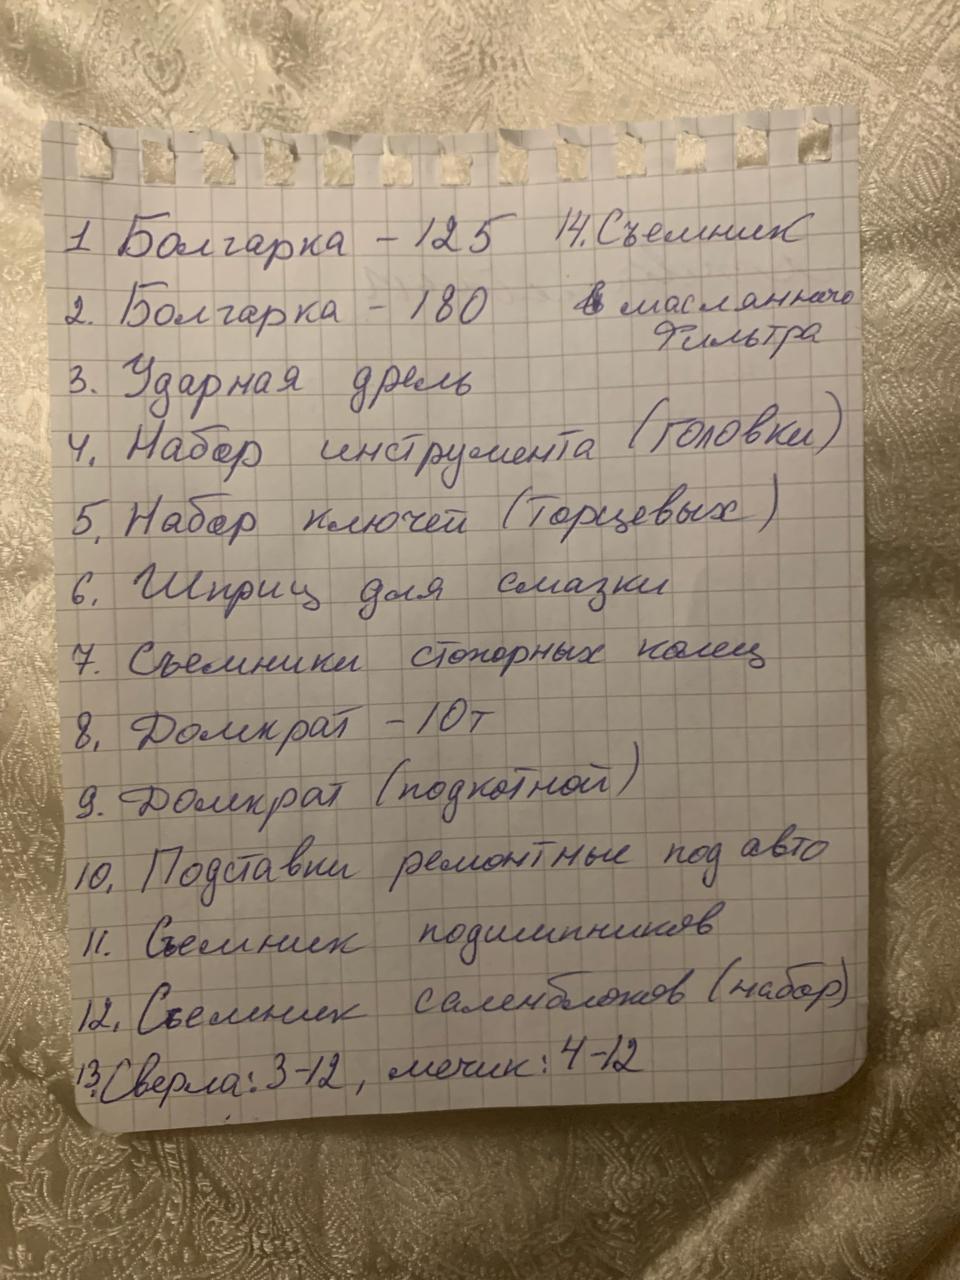 1 Болгарка - 125
2. Болгарка - 180
3. Ударная дрель
4. Набор инструмента (головки)
5. Набор ключей (торцевых)
6. Шприц для смазки
7. Съемники стопорных колец
8. Домкрат - 10т
9. Домкрат (подкотной)
10. Подставки ремонтные под авто
11. Съемник подшипников
12. Съемник саленблоков (набор)
13. Сверла: 3-12, мечик: 4-12
14. Съемник
маслянного
Фильтра